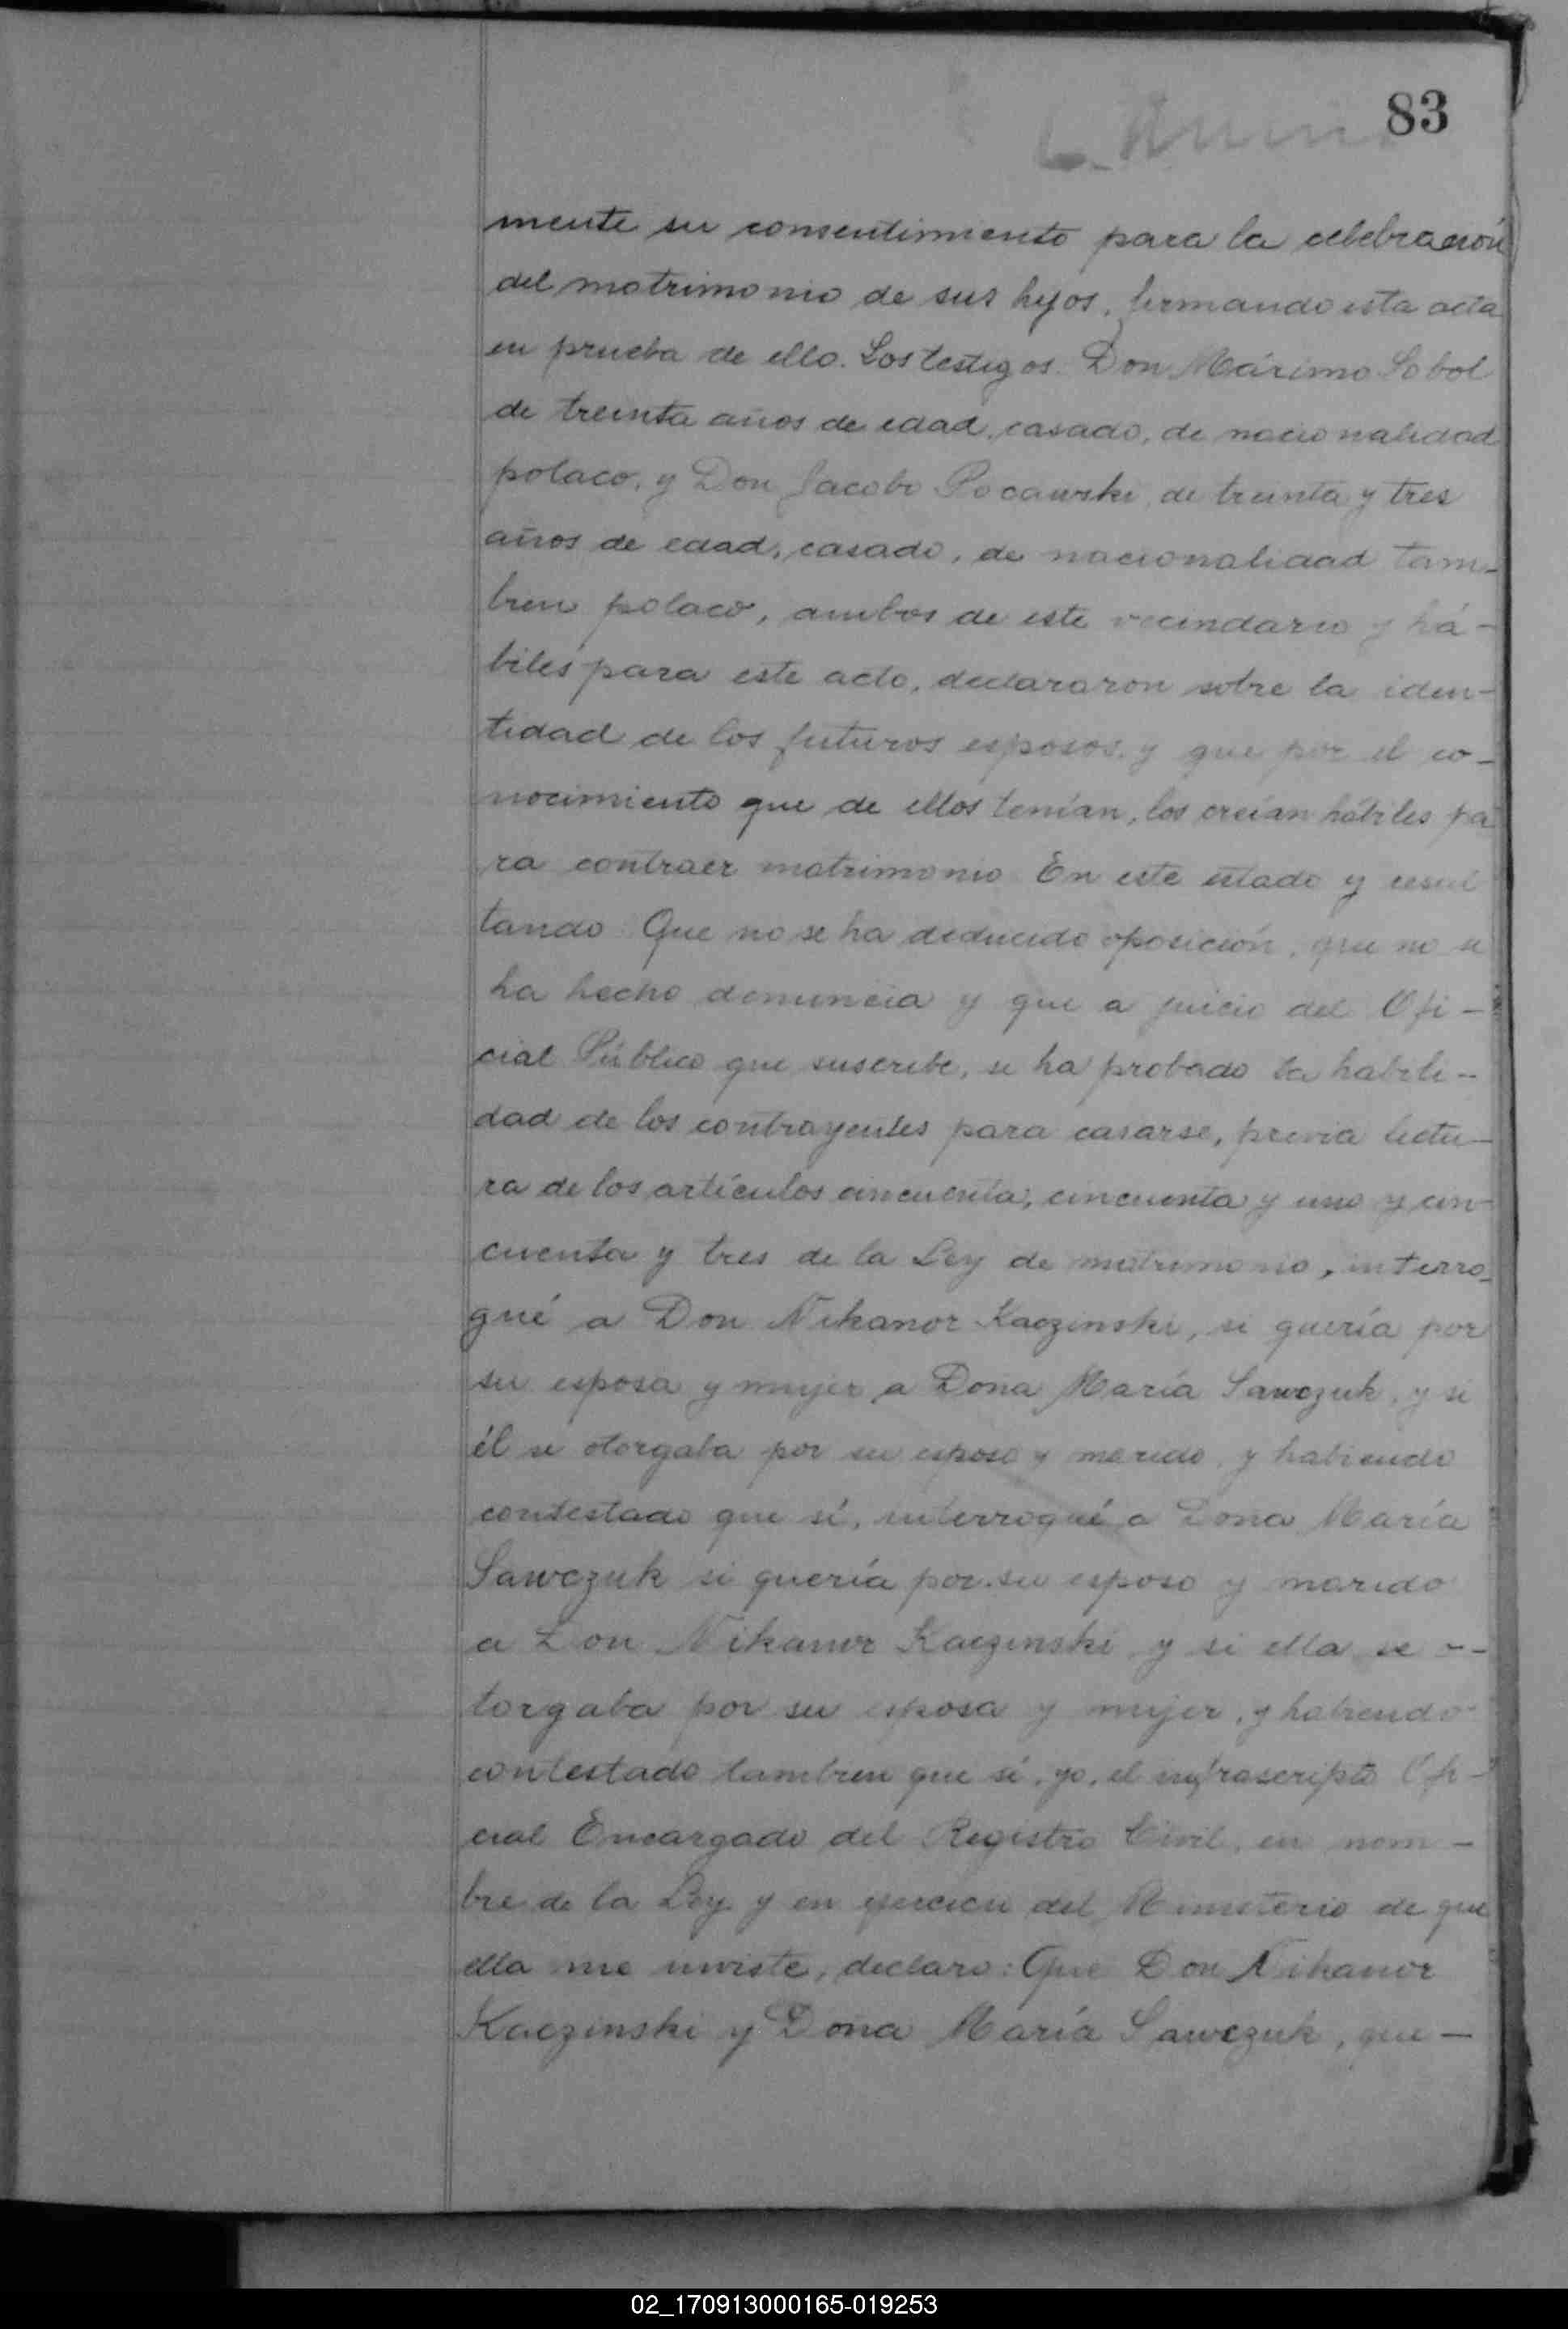 83
mente su consentimiento para la celebración
del matrimonio de sus hijos, firmando esta acta
en prueba de ello. Los testigos Don Máximo Sobol
de treinta años de edad, casado, de nacionalidad
polaco, y Don Jacobo Pocawski, de treinta y tres
años de edad, casado, de nacionalidad tam-
bien polaco, ambos de este vecindario y há-
biles para este acto, declararon sobre la iden-
tidad de los futuros esposos, y que por el co-
nocimiento que de ellos tenían, los creían hábiles pa
ra contraer matrimonio. En este estado y resul
tando: Que no se ha deducido oposición, que no se
ha hecho denuncia y que a juicio del Ofi-
cial Público que suscribe, se ha probado la habili-
dad de los contrayentes para casarse, previa lectu-
ra de los artículos cincuenta, cincuenta y uno y cin-
cuenta y tres de la Ley de matrimonio, interro-
gué a Don Nikanor Kaczinski, si quería por
su esposa y mujer a Doña María Sawczuk, y si
él se otorgaba por su esposo y marido, y habiendo
contestado que sí, interrogué a Doña María
Sawczuk si quería por su esposo y marido
a Don Nikanor Kaczinski y si ella se o-
torgaba por su esposa y mujer, y habiendo
contestado tambien que sí, yo, el infrascripto Ofi-
cial Encargado del Registro Civil, en nom-
bre de la Ley y en ejercicio del Ministerio de que
ella me inviste, declaro: Que Don Nikanor
Kaczinski y Doña María Sawczuk, que-
02_170913000165-019253